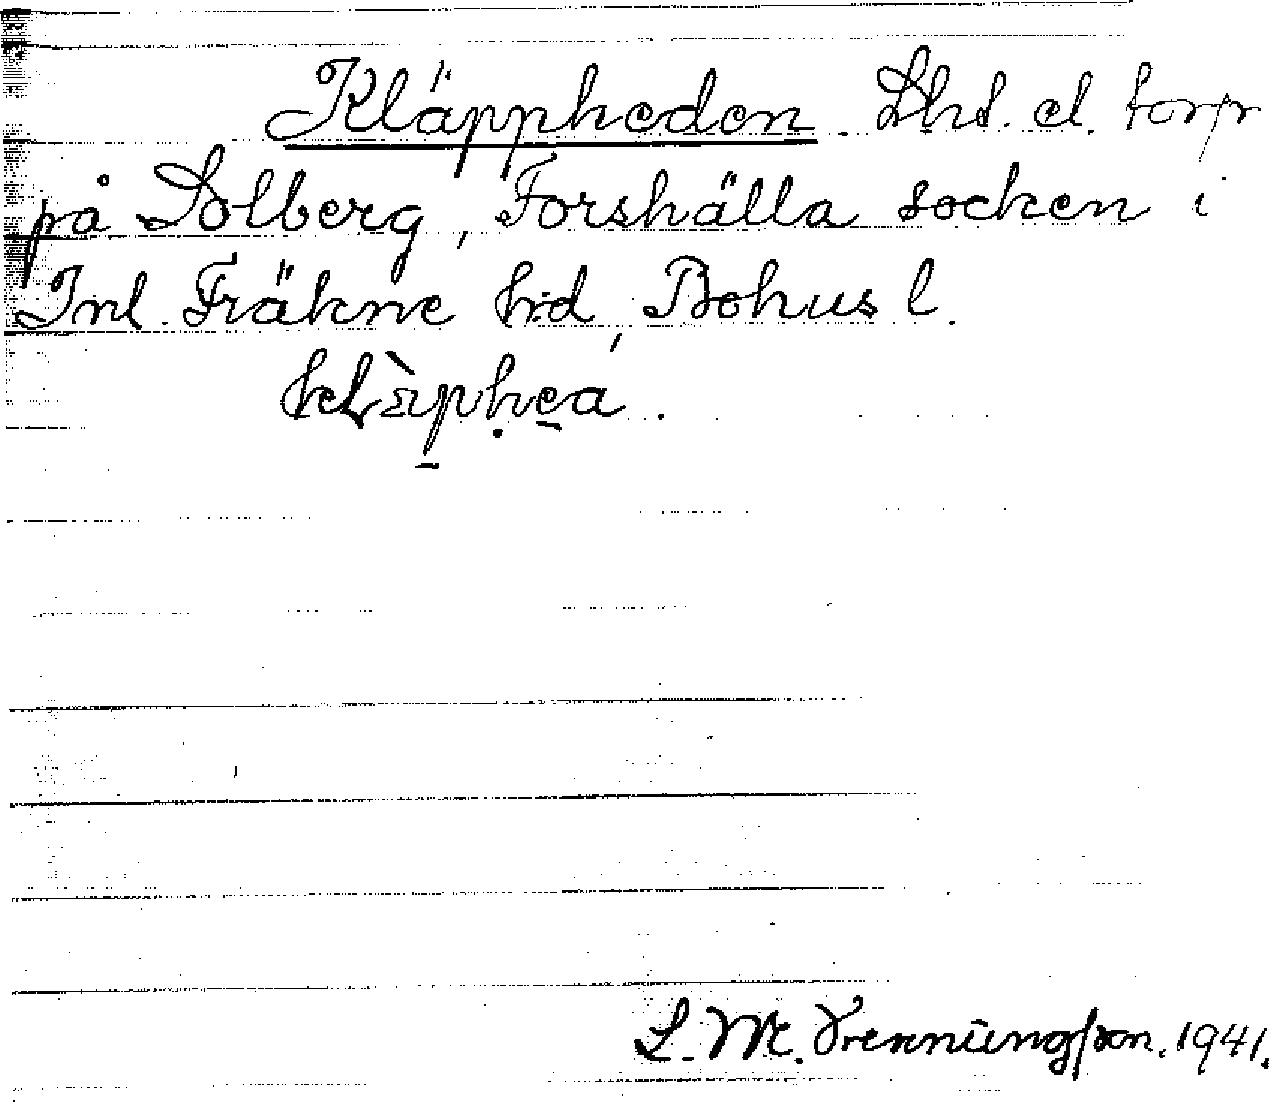 Kläppheden. Lht. el. torp
på Solberg, Forshälla socken i
Inl. Fräkne hd, Bohus l.
L. M. Svenningsson. 1941.